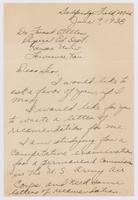 Selfridge Field Mich
June 9, 1928
Dr. Forrest Allen
Physical Ed. Dept
Kansas Univ.
Lawrence, Kan
Dear Sir:
I would like to
ask a favor of you if I
may.
I would like for you
to write a letter of
recomendation for me
I am studying for a
Competitive examination
for a permanent Commission
in the U.S. Army Air
Corps and need some
letters of recomendation